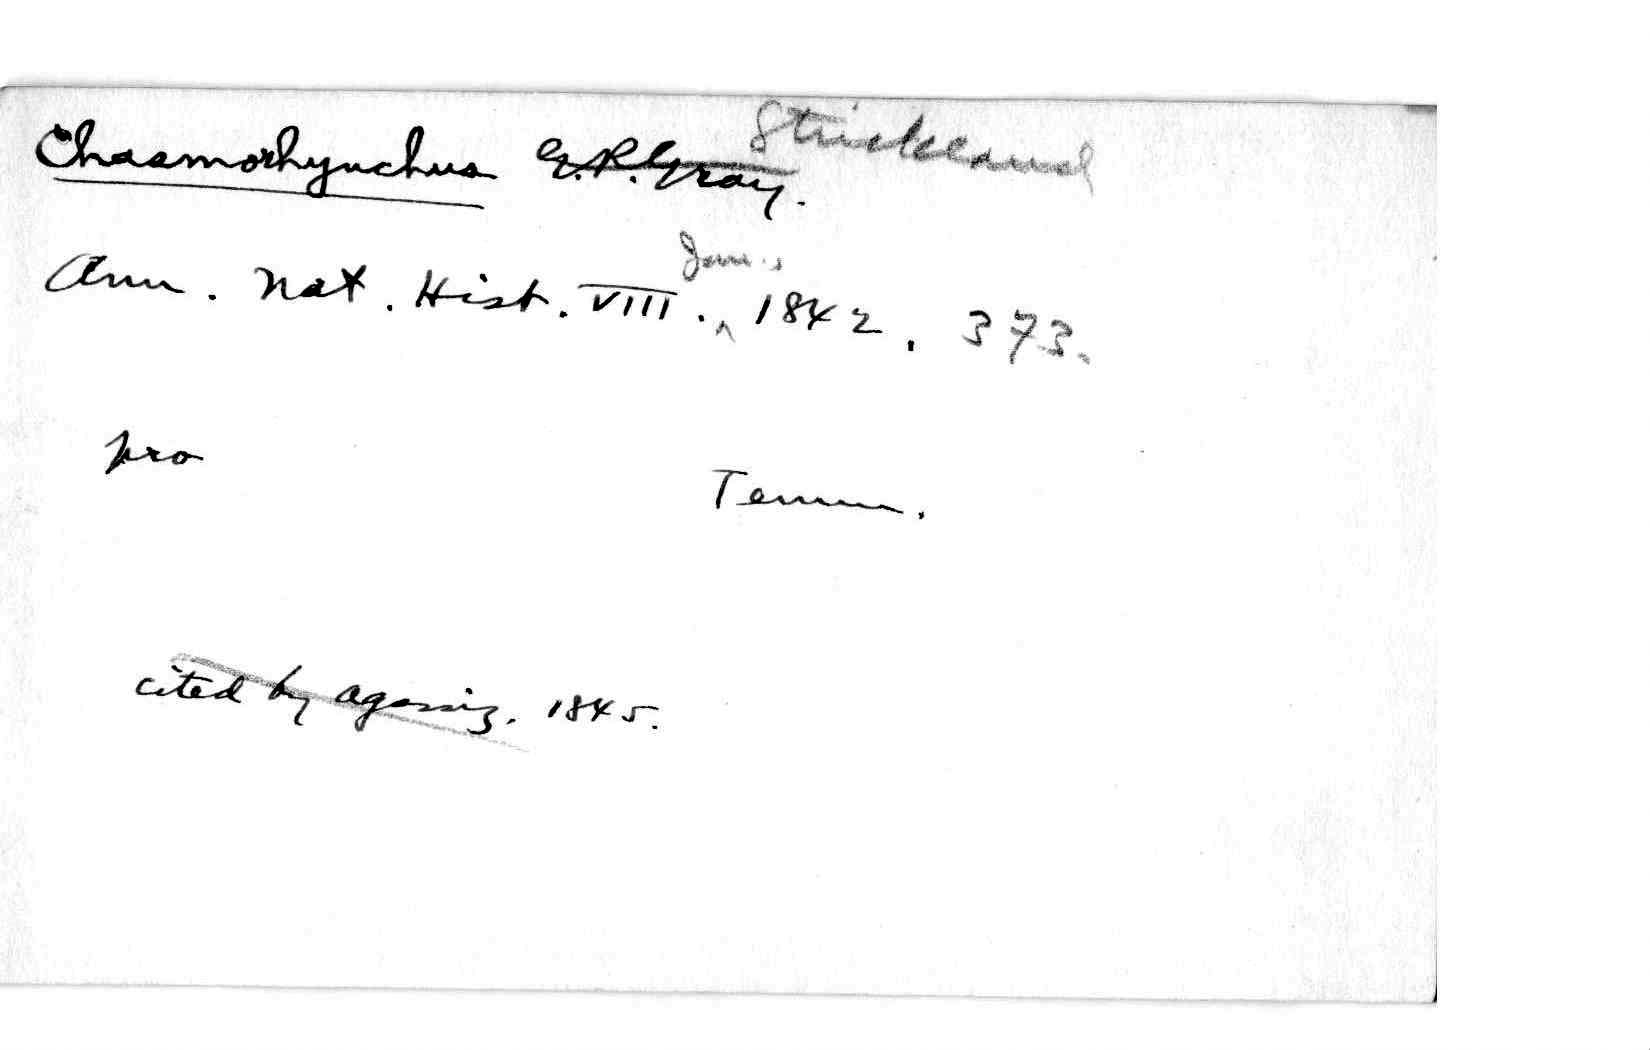 Chasmorhynchus G.R.Gray. Strickland
Ann. Nat. Hist. VIII. Jan. 1842, 373.
pro Temm.
cited by Agassiz. 1845.